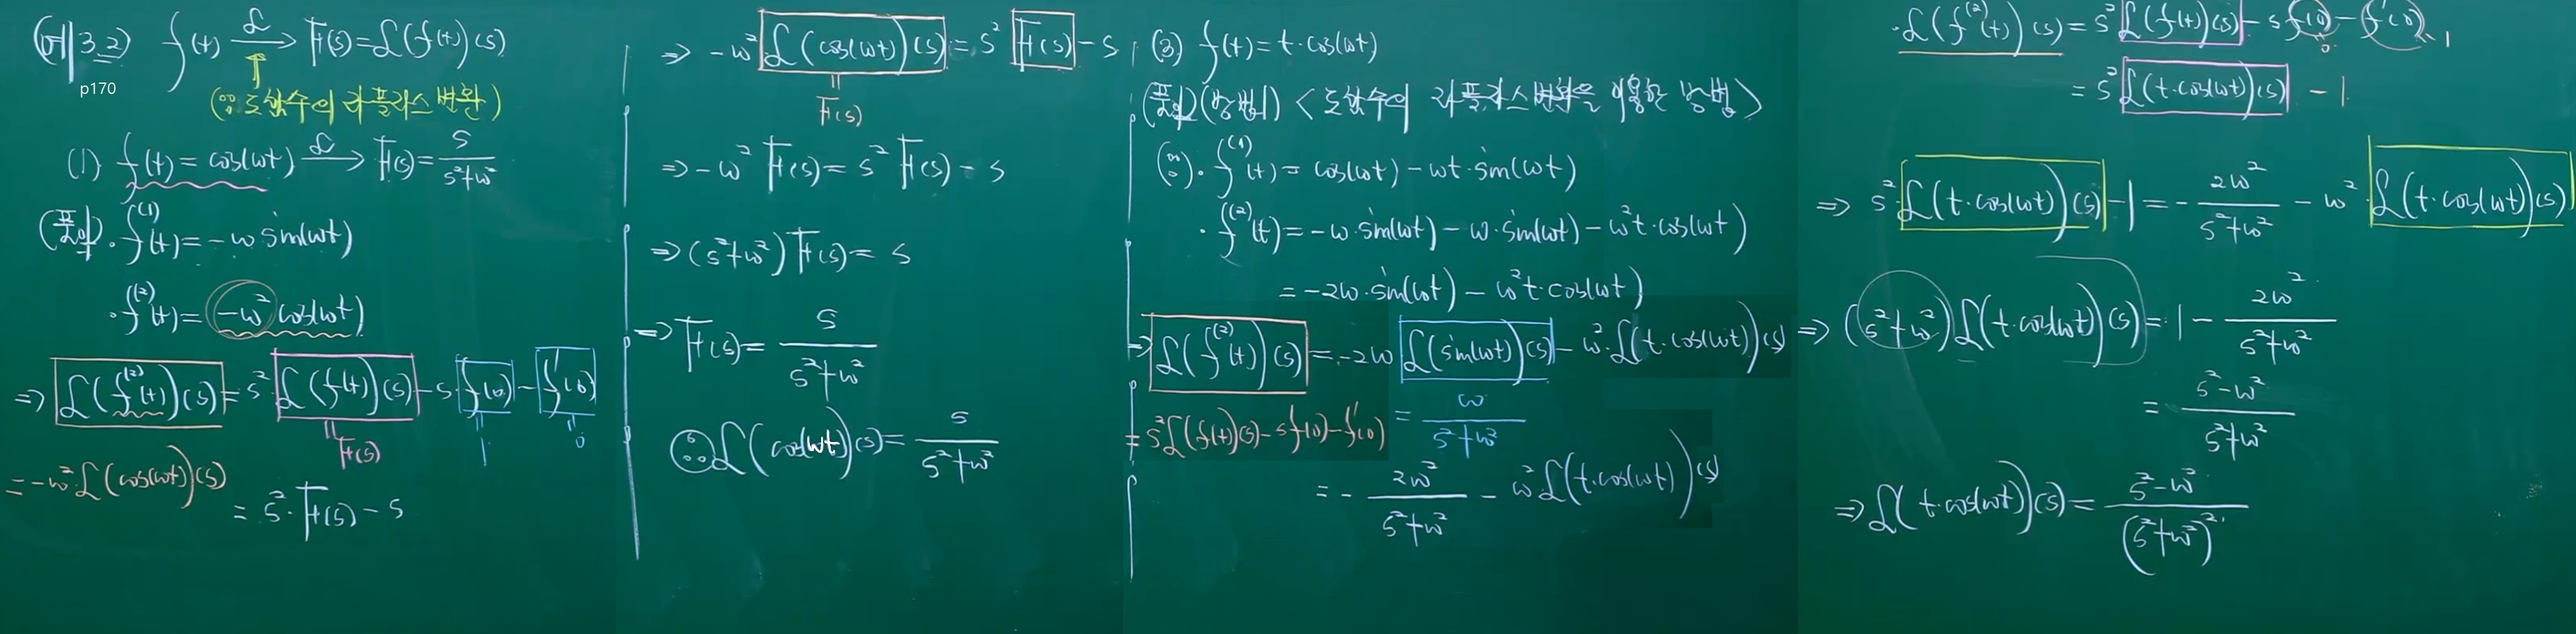 (예 3.2) f(t) ℒ→ F(s)=ℒ(f(t))(s)
p170
(∵ 도함수의 라플라스 변환)
(1) f(t) = cos(ωt) ℒ→ F(s)= s/(s²+ω²)
(풀이) · f⁽¹⁾(t)= -ω sin(ωt)
· f⁽²⁾(t)= -ω² cos(ωt)
⇒ ℒ(f⁽²⁾(t))(s) = s² ℒ(f(t))(s) - s·f(0) - f′(0)
‖ F(s) ‖ 1 ‖ 0
= -ω² ℒ(cos(ωt))(s)
= s²·F(s) - s
⇒ -ω² ℒ(cos(ωt))(s) = s² F(s) - s
‖
F(s)
⇒ -ω² F(s) = s² F(s) - s
⇒ (s²+ω²) F(s) = s
⇒ F(s) = s/(s²+ω²)
∴ ℒ(cos(ωt))(s) = s/(s²+ω²)
(3) f(t) = t·cos(ωt)
(풀이) (방법1) < 도함수의 라플라스변환을 이용한 방법 >
(∵) · f⁽¹⁾(t) = cos(ωt) - ωt·sin(ωt)
· f⁽²⁾(t) = -ω·sin(ωt) - ω·sin(ωt) - ω²t·cos(ωt)
= -2ω·sin(ωt) - ω²t·cos(ωt)
⇒ ℒ(f⁽²⁾(t))(s) = -2ω ℒ(sin(ωt))(s) - ω²·ℒ(t·cos(ωt))(s)
= s²ℒ(f(t))(s) - sf(0) - f′(0)
= ω/(s²+ω²)
= - 2ω²/(s²+ω²) - ω² ℒ(t·cos(ωt))(s)
· ℒ(f⁽²⁾(t))(s) = s² ℒ(f(t))(s) - s f(0) - f′(0)
0 1
= s² ℒ(t·cos(ωt))(s) - 1
⇒ s² ℒ(t·cos(ωt))(s) - 1 = - 2ω²/(s²+ω²) - ω² ℒ(t·cos(ωt))(s)
⇒ (s²+ω²) ℒ(t·cos(ωt))(s) = 1 - 2ω²/(s²+ω²)
= (s²-ω²)/(s²+ω²)
⇒ ℒ(t·cos(ωt))(s) = (s²-ω²)/(s²+ω²)²